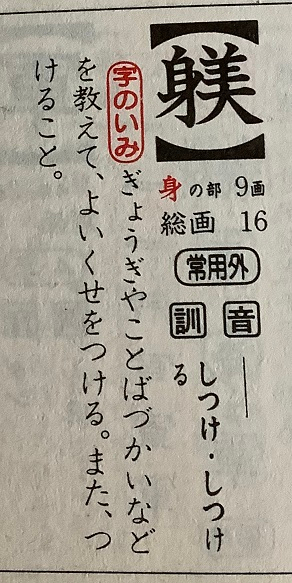 【躾】
身の部 9画
総画 16
常用外
音 ―
訓 しつけ・しつけ
る
字のいみ ぎょうぎやことばづかいなど
を教えて、よいくせをつける。また、つ
けること。